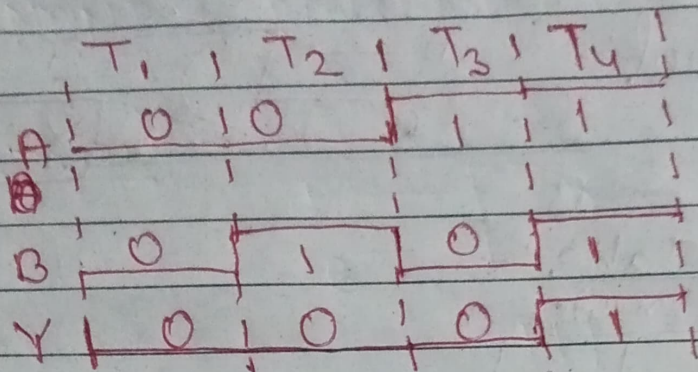 T1 T2 T3 T4
A 0 0 1 1
B 0 1 0 1
Y 0 0 0 1